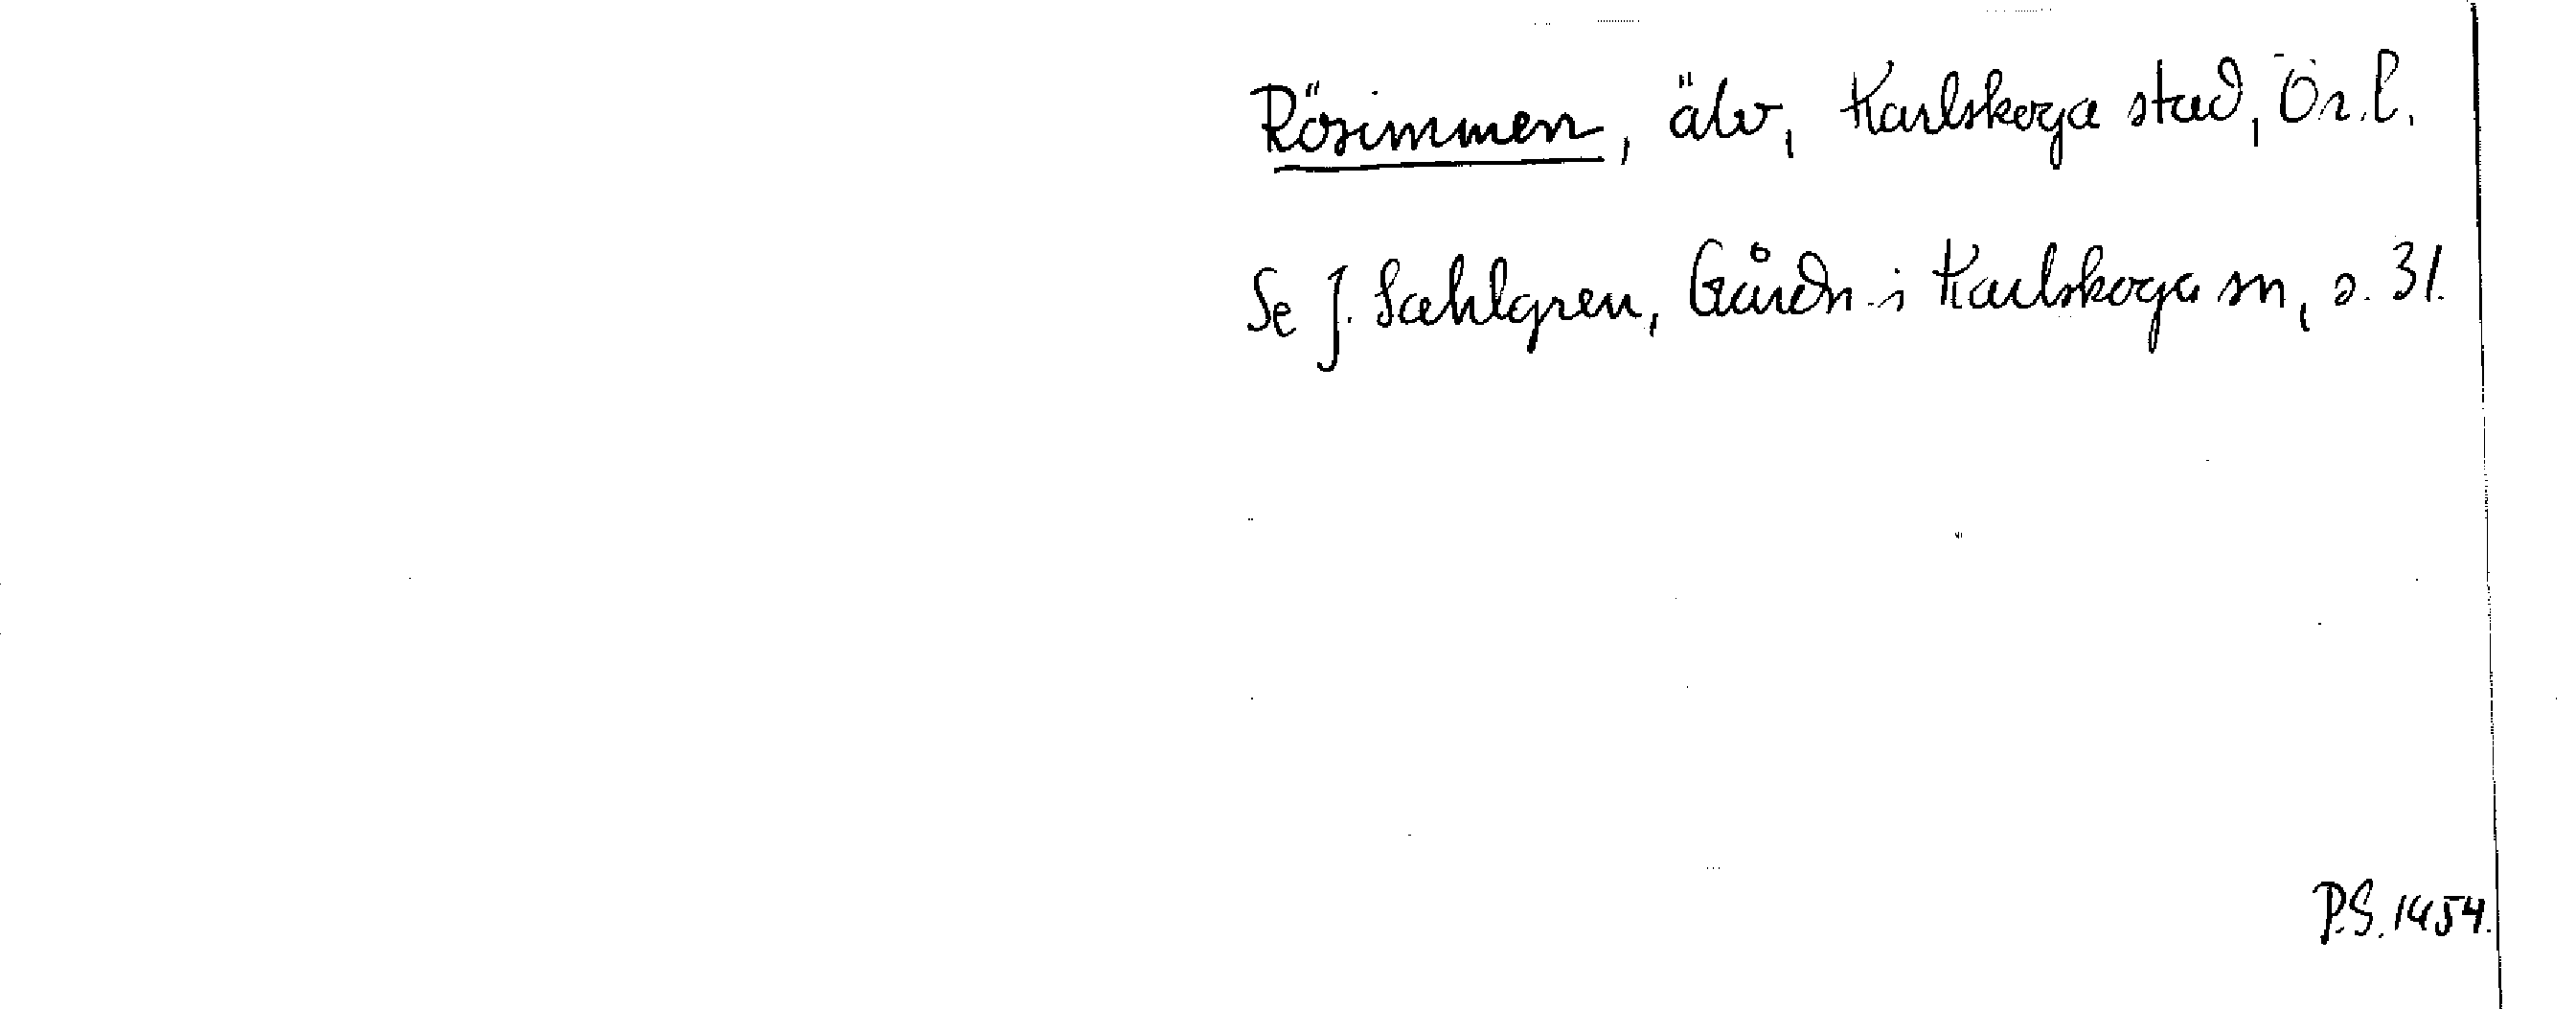 Rösimmen, älv, Karlskoga stad, Ör. l.
Se J. Sahlgren, Gårdn. i Karlskoga sn, s. 31.
P.S. 1954.